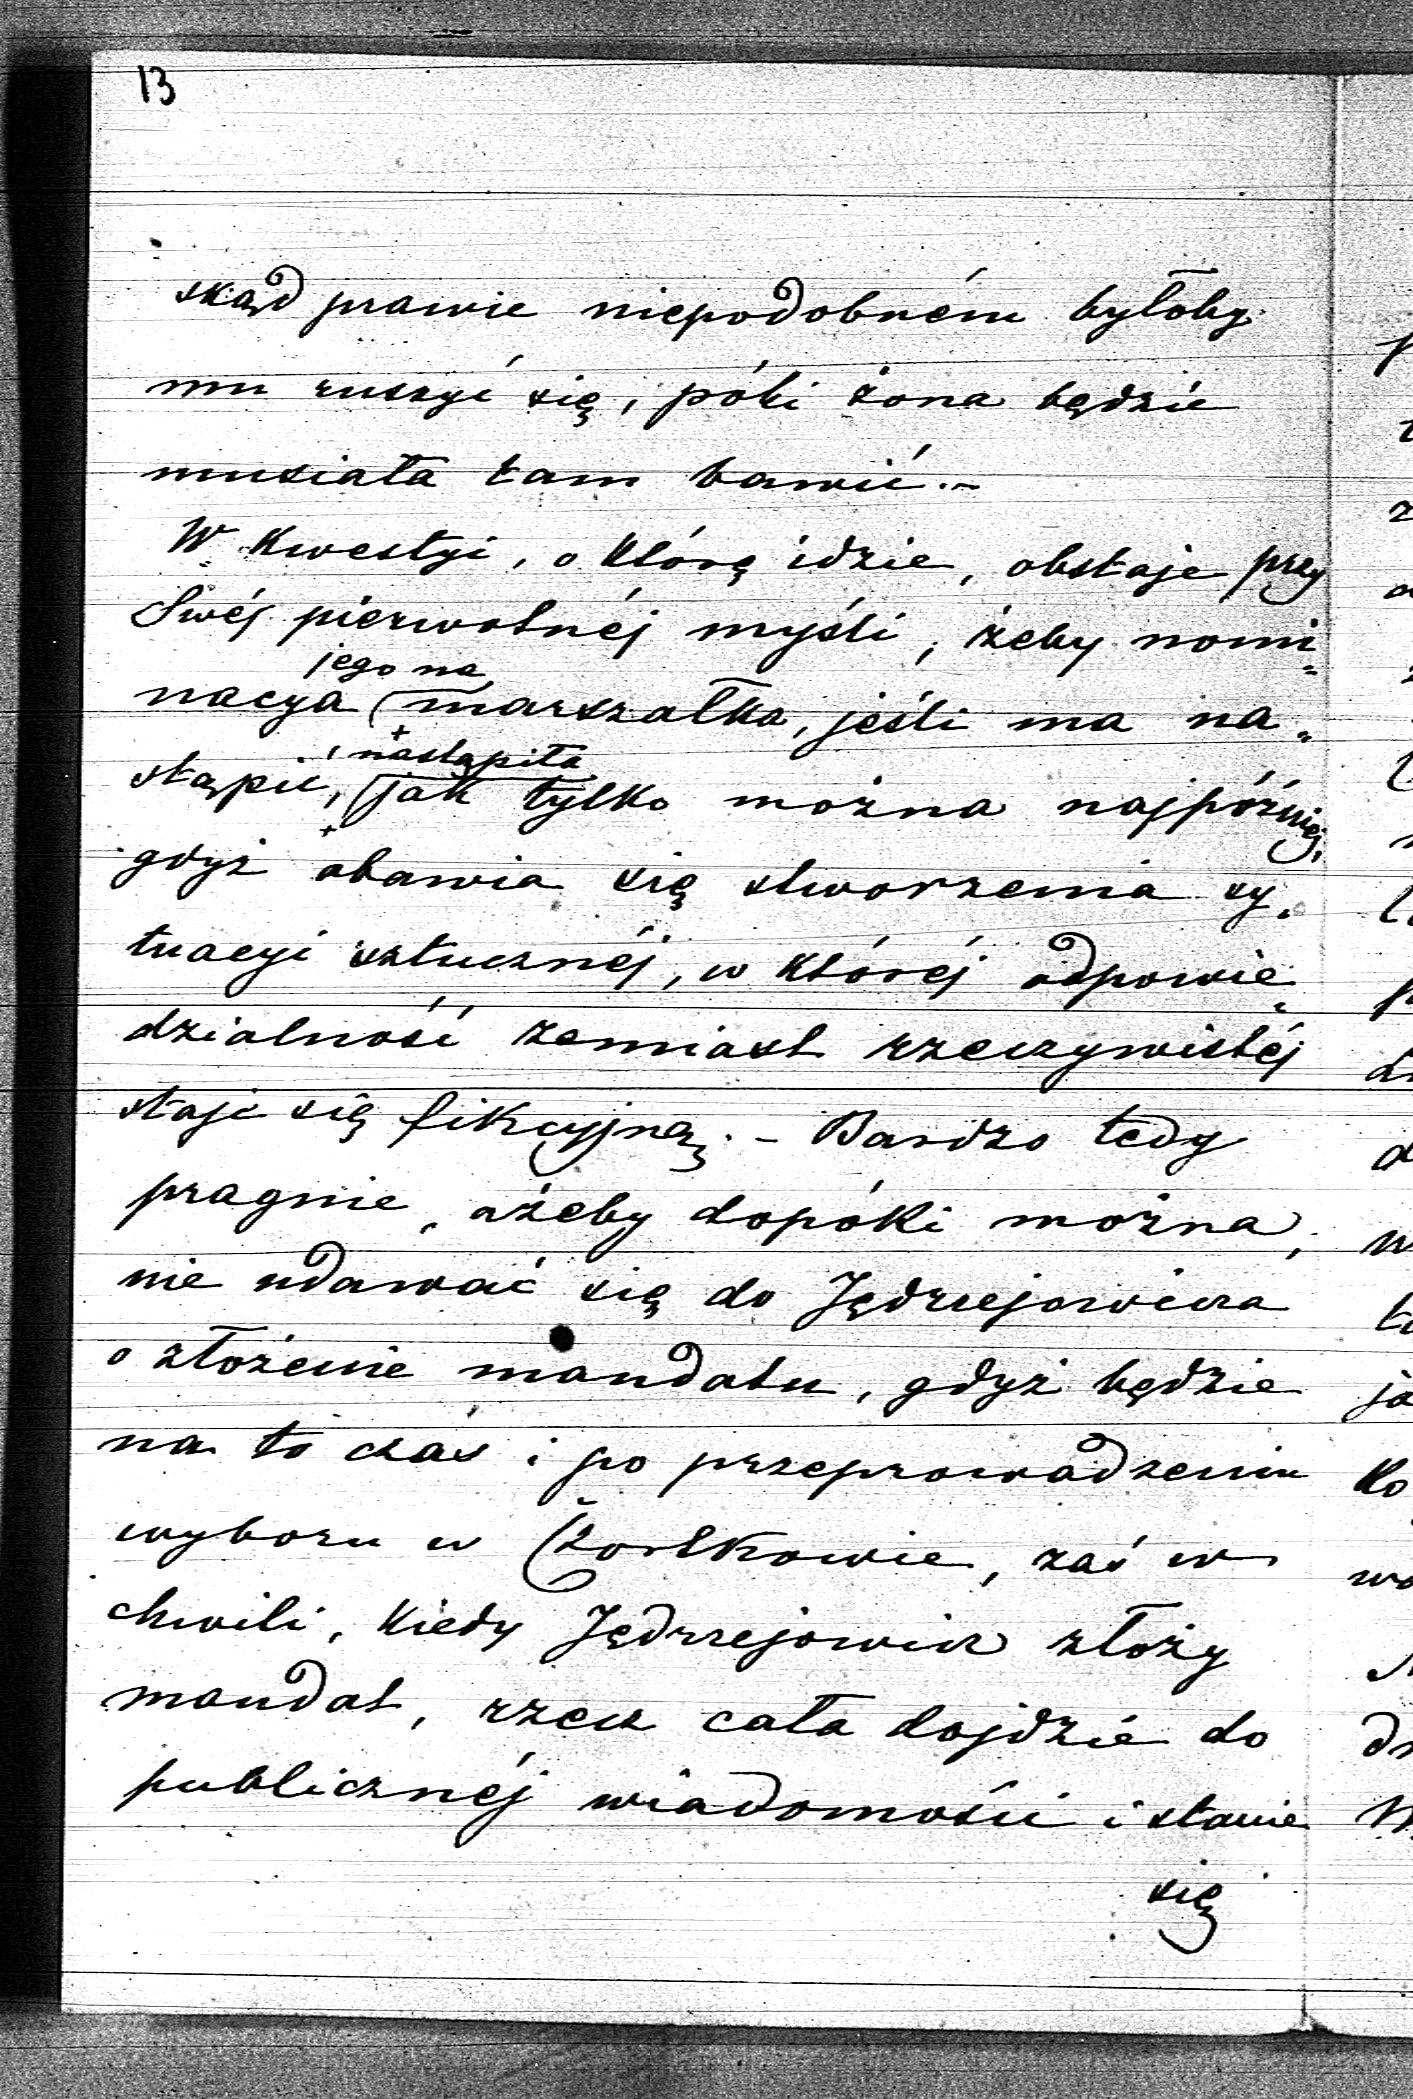 13
skąd prawie niepodobném byłoby
mu ruszyć się, póki żona będzie
musiała tam bawić.-
W Kwestyi, o Którą idzie, obstaje przy
Swéj pierwotnéj myśli, żeby nomi„
jego na
nacya marszałka, jeśli ma na„
nastąpiła
stąpić, jak tylko można najpóźniej,
gdyż obawia się stworzenia sy„
tuacyi sztucznéj, w Któréj odpowie„
dzialność zamiast rzeczywistéj
staje się fikcyjną. - Bardzo tedy
pragnie, ażeby dopóki można,
nie udawać się do Jędrzejowicza
o złożenie mandatu, gdyż będzie
na to czas i po przeprowadzeniu
wyboru w Czortkowie, zaś w
chwili, Kiedy Jędrzejowicz złoży
mandat, rzecz cała dojdzie do
publicznéj wiadomości i stanie
się